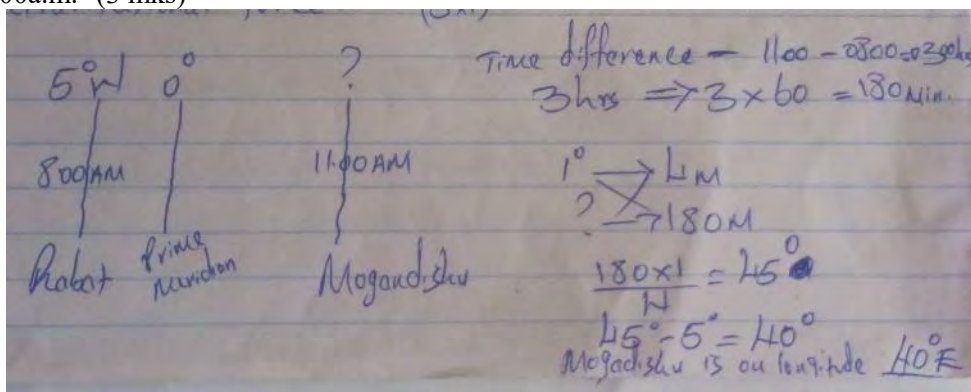 00a.m. (3 mks)
5°W 0° ?
800AM 11.00AM
Rabat Prime Meridian Mogadishu
Time difference - 1100 - 0800=0300hrs
3hrs => 3 x 60 = 180 Min.
1° → 4M
? → 180M
180x1 = 45°
4
45°-5° = 40°
Mogadishu is on longitude 40°E